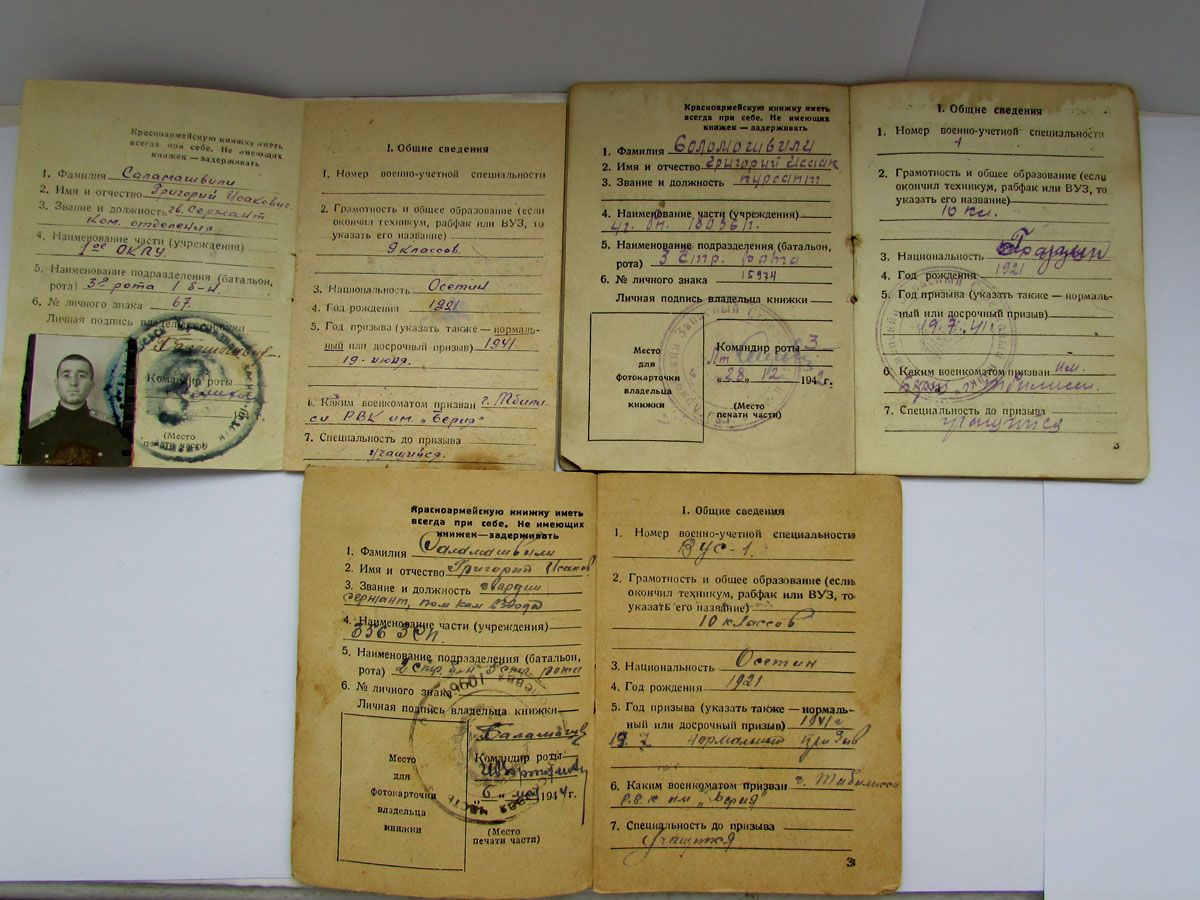 Красноармейскую книжку иметь
всегда при себе. Не имеющих
книжек — задерживать
1. Фамилия Саламашвили
2. Имя и отчество Григорий Исакович
3. Звание и должность гв. Сержант
ком. отделения
4. Наименование части (учреждения)
1ое ОКПУ.
5. Наименование подразделения (батальон,
рота) 3я рота 1 б-н.
6. № личного знака 67.
Личная подпись владельца книжки
Командир роты
194 г.
(Место
печати части)
I. Общие сведения
1. Номер военно-учетной специальности
2. Грамотность и общее образование (если
окончил техникум, рабфак или ВУЗ, то
указать его название)
9 классов.
3. Национальность Осетин
4. Год рождения 1921
5. Год призыва (указать также — нормаль-
ный или досрочный призыв) 1941
19 июля.
6. Каким военкоматом призван г. Тбили-
си РВК им. „Берия"
7. Специальность до призыва
учащийся.
Красноармейскую книжку иметь
всегда при себе. Не имеющих
книжек — задерживать
1. Фамилия Соломошвили
2. Имя и отчество Григорий Исаак
3. Звание и должность курсант
4. Наименование части (учреждения)
5. Наименование подразделения (батальон,
рота) 3 стр. рота
6. № личного знака 15974
Личная подпись владельца книжки
Место
для
фотокарточки
владельца
книжки
Командир роты
Лт
„ 28 " 12. 194 г.
(Место
печати части)
I. Общие сведения
1. Номер военно-учетной специальности
1
2. Грамотность и общее образование (если
окончил техникум, рабфак или ВУЗ, то
указать его название)
10 кл.
3. Национальность Грузин
4. Год рождения 1921
5. Год призыва (указать также — нормаль-
ный или досрочный призыв)
19.7.41г.
6. Каким военкоматом призван им.
г. Тбилиси.
7. Специальность до призыва
учащийся
3
Красноармейскую книжку иметь
всегда при себе. Не имеющих
книжек—задерживать
1. Фамилия Саламашвили
2. Имя и отчество Григорий Исаков
3. Звание и должность гвардии
сержант, пом ком взвода
4. Наименование части (учреждения)
336 ЗСП.
5. Наименование подразделения (батальон,
рота) 2 стр. б-н 5 стр. рота
6. № личного знака
Личная подпись владельца книжки
Саламашв
Место
для
фотокарточки
владельца
книжки
Командир роты
„ 6 " мая 1944 г.
(Место
печати части)
I. Общие сведения
1. Номер военно-учетной специальности
ВУС-1.
2. Грамотность и общее образование (если
окончил техникум, рабфак или ВУЗ, то
указать его название)
10 классов
3. Национальность Осетин
4. Год рождения 1921
5. Год призыва (указать также — нормаль-
ный или досрочный призыв) 1941 г
19. 7 нормальный призыв
6. Каким военкоматом призван г. Тибилиси
Р.В.К им „Берия"
7. Специальность до призыва
Учащийся
3